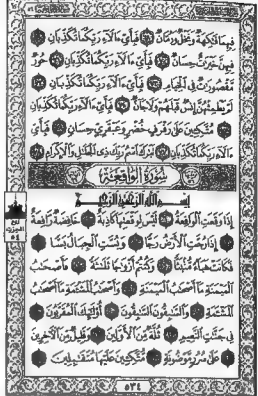 فِيهِمَا فَاكِهَةٌ وَنَخْلٌ وَرُمَّانٌ ۝ فَبِأَيِّ ءَالَاءِ رَبِّكُمَا تُكَذِّبَانِ ۝
فِيهِنَّ خَيْرَاتٌ حِسَانٌ ۝ فَبِأَيِّ ءَالَاءِ رَبِّكُمَا تُكَذِّبَانِ ۝ حُورٌ
مَقْصُورَاتٌ فِي الْخِيَامِ ۝ فَبِأَيِّ ءَالَاءِ رَبِّكُمَا تُكَذِّبَانِ ۝
لَمْ يَطْمِثْهُنَّ إِنسٌ قَبْلَهُمْ وَلَا جَانٌّ ۝ فَبِأَيِّ ءَالَاءِ رَبِّكُمَا تُكَذِّبَانِ
۝ مُتَّكِئِينَ عَلَى رَفْرَفٍ خُضْرٍ وَعَبْقَرِيٍّ حِسَانٍ ۝ فَبِأَيِّ
ءَالَاءِ رَبِّكُمَا تُكَذِّبَانِ ۝ تَبَارَكَ اسْمُ رَبِّكَ ذِي الْجَلَالِ وَالْإِكْرَامِ ۝
سُورَةُ الْوَاقِعَةِ
بِسْمِ اللَّهِ الرَّحْمَٰنِ الرَّحِيمِ
إِذَا وَقَعَتِ الْوَاقِعَةُ ۝ لَيْسَ لِوَقْعَتِهَا كَاذِبَةٌ ۝ خَافِضَةٌ رَّافِعَةٌ
۝ إِذَا رُجَّتِ الْأَرْضُ رَجًّا ۝ وَبُسَّتِ الْجِبَالُ بَسًّا ۝
فَكَانَتْ هَبَاءً مُّنبَثًّا ۝ وَكُنتُمْ أَزْوَاجًا ثَلَاثَةً ۝ فَأَصْحَابُ
الْمَيْمَنَةِ مَا أَصْحَابُ الْمَيْمَنَةِ ۝ وَأَصْحَابُ الْمَشْأَمَةِ مَا أَصْحَابُ
الْمَشْأَمَةِ ۝ وَالسَّابِقُونَ السَّابِقُونَ ۝ أُولَٰئِكَ الْمُقَرَّبُونَ ۝
فِي جَنَّاتِ النَّعِيمِ ۝ ثُلَّةٌ مِّنَ الْأَوَّلِينَ ۝ وَقَلِيلٌ مِّنَ الْآخِرِينَ
۝ عَلَى سُرُرٍ مَّوْضُونَةٍ ۝ مُتَّكِئِينَ عَلَيْهَا مُتَقَابِلِينَ ۝
٥٣٤